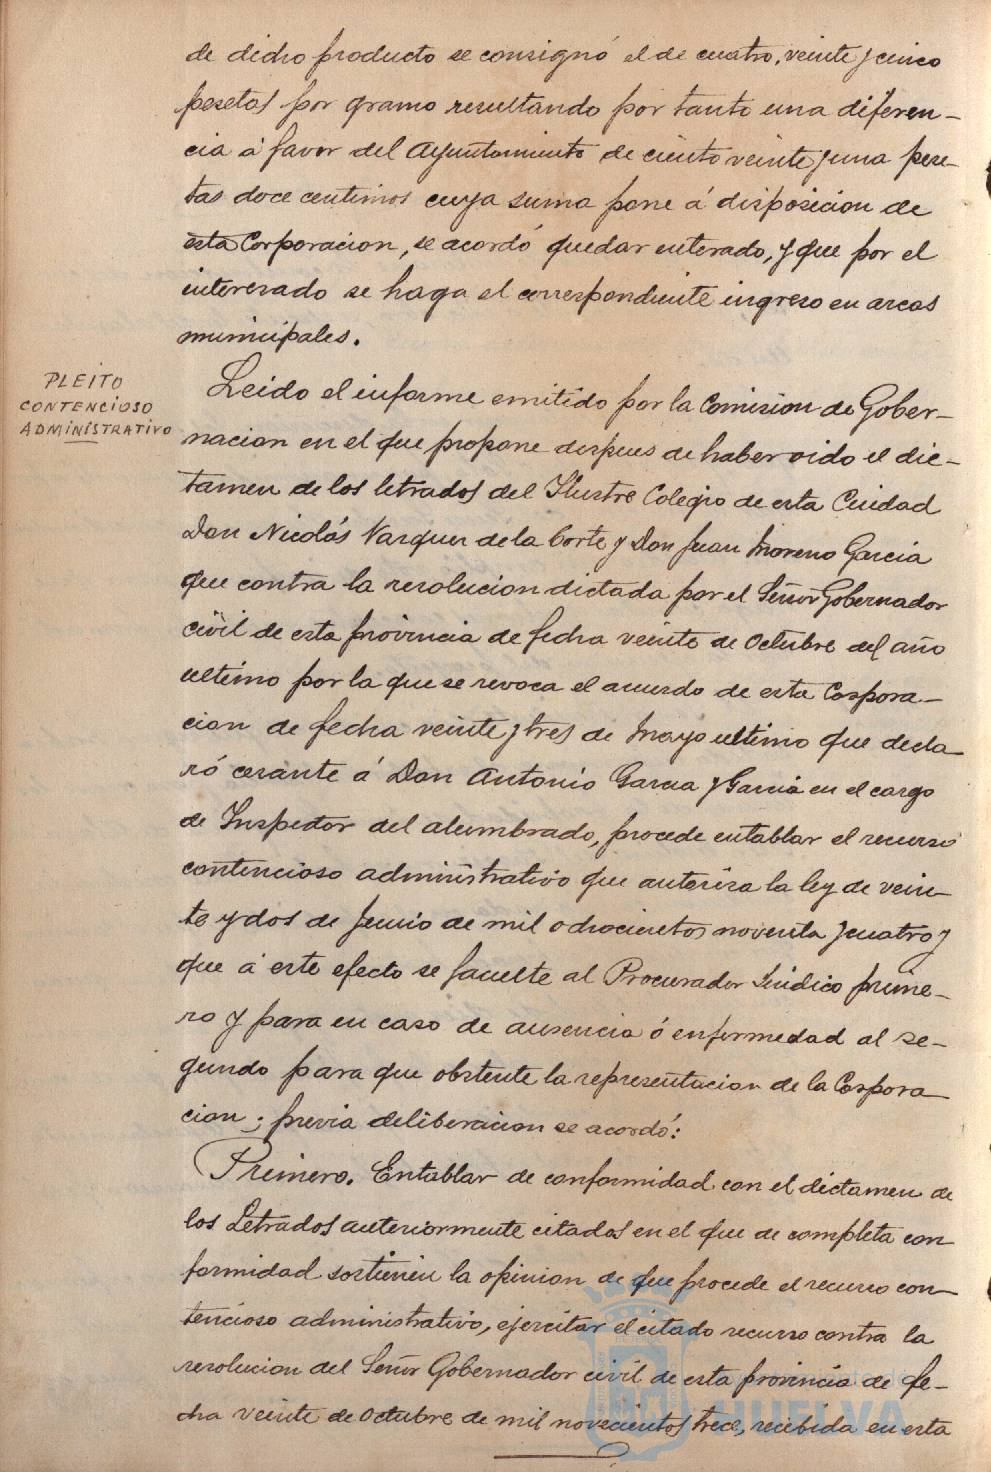 de dicho producto se consignó el de cuatro, veinte y cinco
pesetas por gramo resultando por tanto una diferen-
cia á favor del Ayuntamiento de ciento veinte y una pese-
tas doce centimos cuya suma pone á disposicion de
esta Corporacion, se acordó quedar enterado, y que por el
interesado se haga el correspondiente ingreso en arcas
municipales.
PLEITO
CONTENCIOSO
ADMINISTRATIVO
Leido el informe emitido por la Comision de Gober-
nacion en el que propone despues de haber oido el dic-
tamen de los letrados del Ilustre Colegio de esta Ciudad
Don Nicolás Vazquez de la Corte y Don Juan Moreno Garcia
que contra la resolucion dictada por el Señor Gobernador
civil de esta provincia de fecha veinte de Octubre del año
ultimo por la que se revoca el acuerdo de esta Corpora-
cion de fecha veinte y tres de Mayo ultimo que decla-
ró cesante á Don Antonio Garcia y Garcia en el cargo
de Inspector del alumbrado, procede entablar el recurso
contencioso administrativo que autoriza la ley de vein-
te y dos de Junio de mil ochocientos noventa y cuatro y
que á este efecto se faculte al Procurador Sindico prime-
ro y para en caso de ausencia ó enfermedad al se-
gundo para que obstente la representacion de la Corpora-
cion; previa deliberacion se acordó:
Primero. Entablar de conformidad con el dictamen de
los Letrados anteriormente citados en el que de completa con-
formidad sostienen la opinion de que procede el recurso con-
tencioso administrativo, ejercitar el citado recurso contra la
resolucion del Señor Gobernador civil de esta provincia de fe-
cha veinte de Octubre de mil novecientos trece, recibida en esta
HUELVA